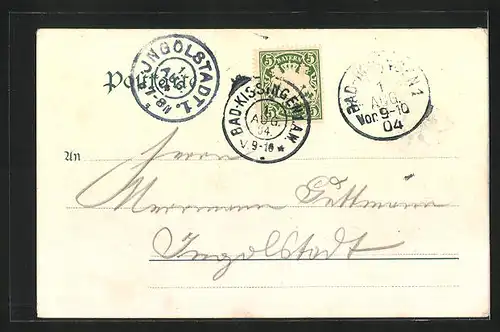 INGOLSTADT 1.
1
AUG
Postkarte
BAYERN
5 5
BAD-KISSINGEN
1
AUG.
04
V. 9-10
BAD-KISSINGEN 1
1
AUG
Vor 9-10
04
An
Herrn
Herrmann
Ingolstadt